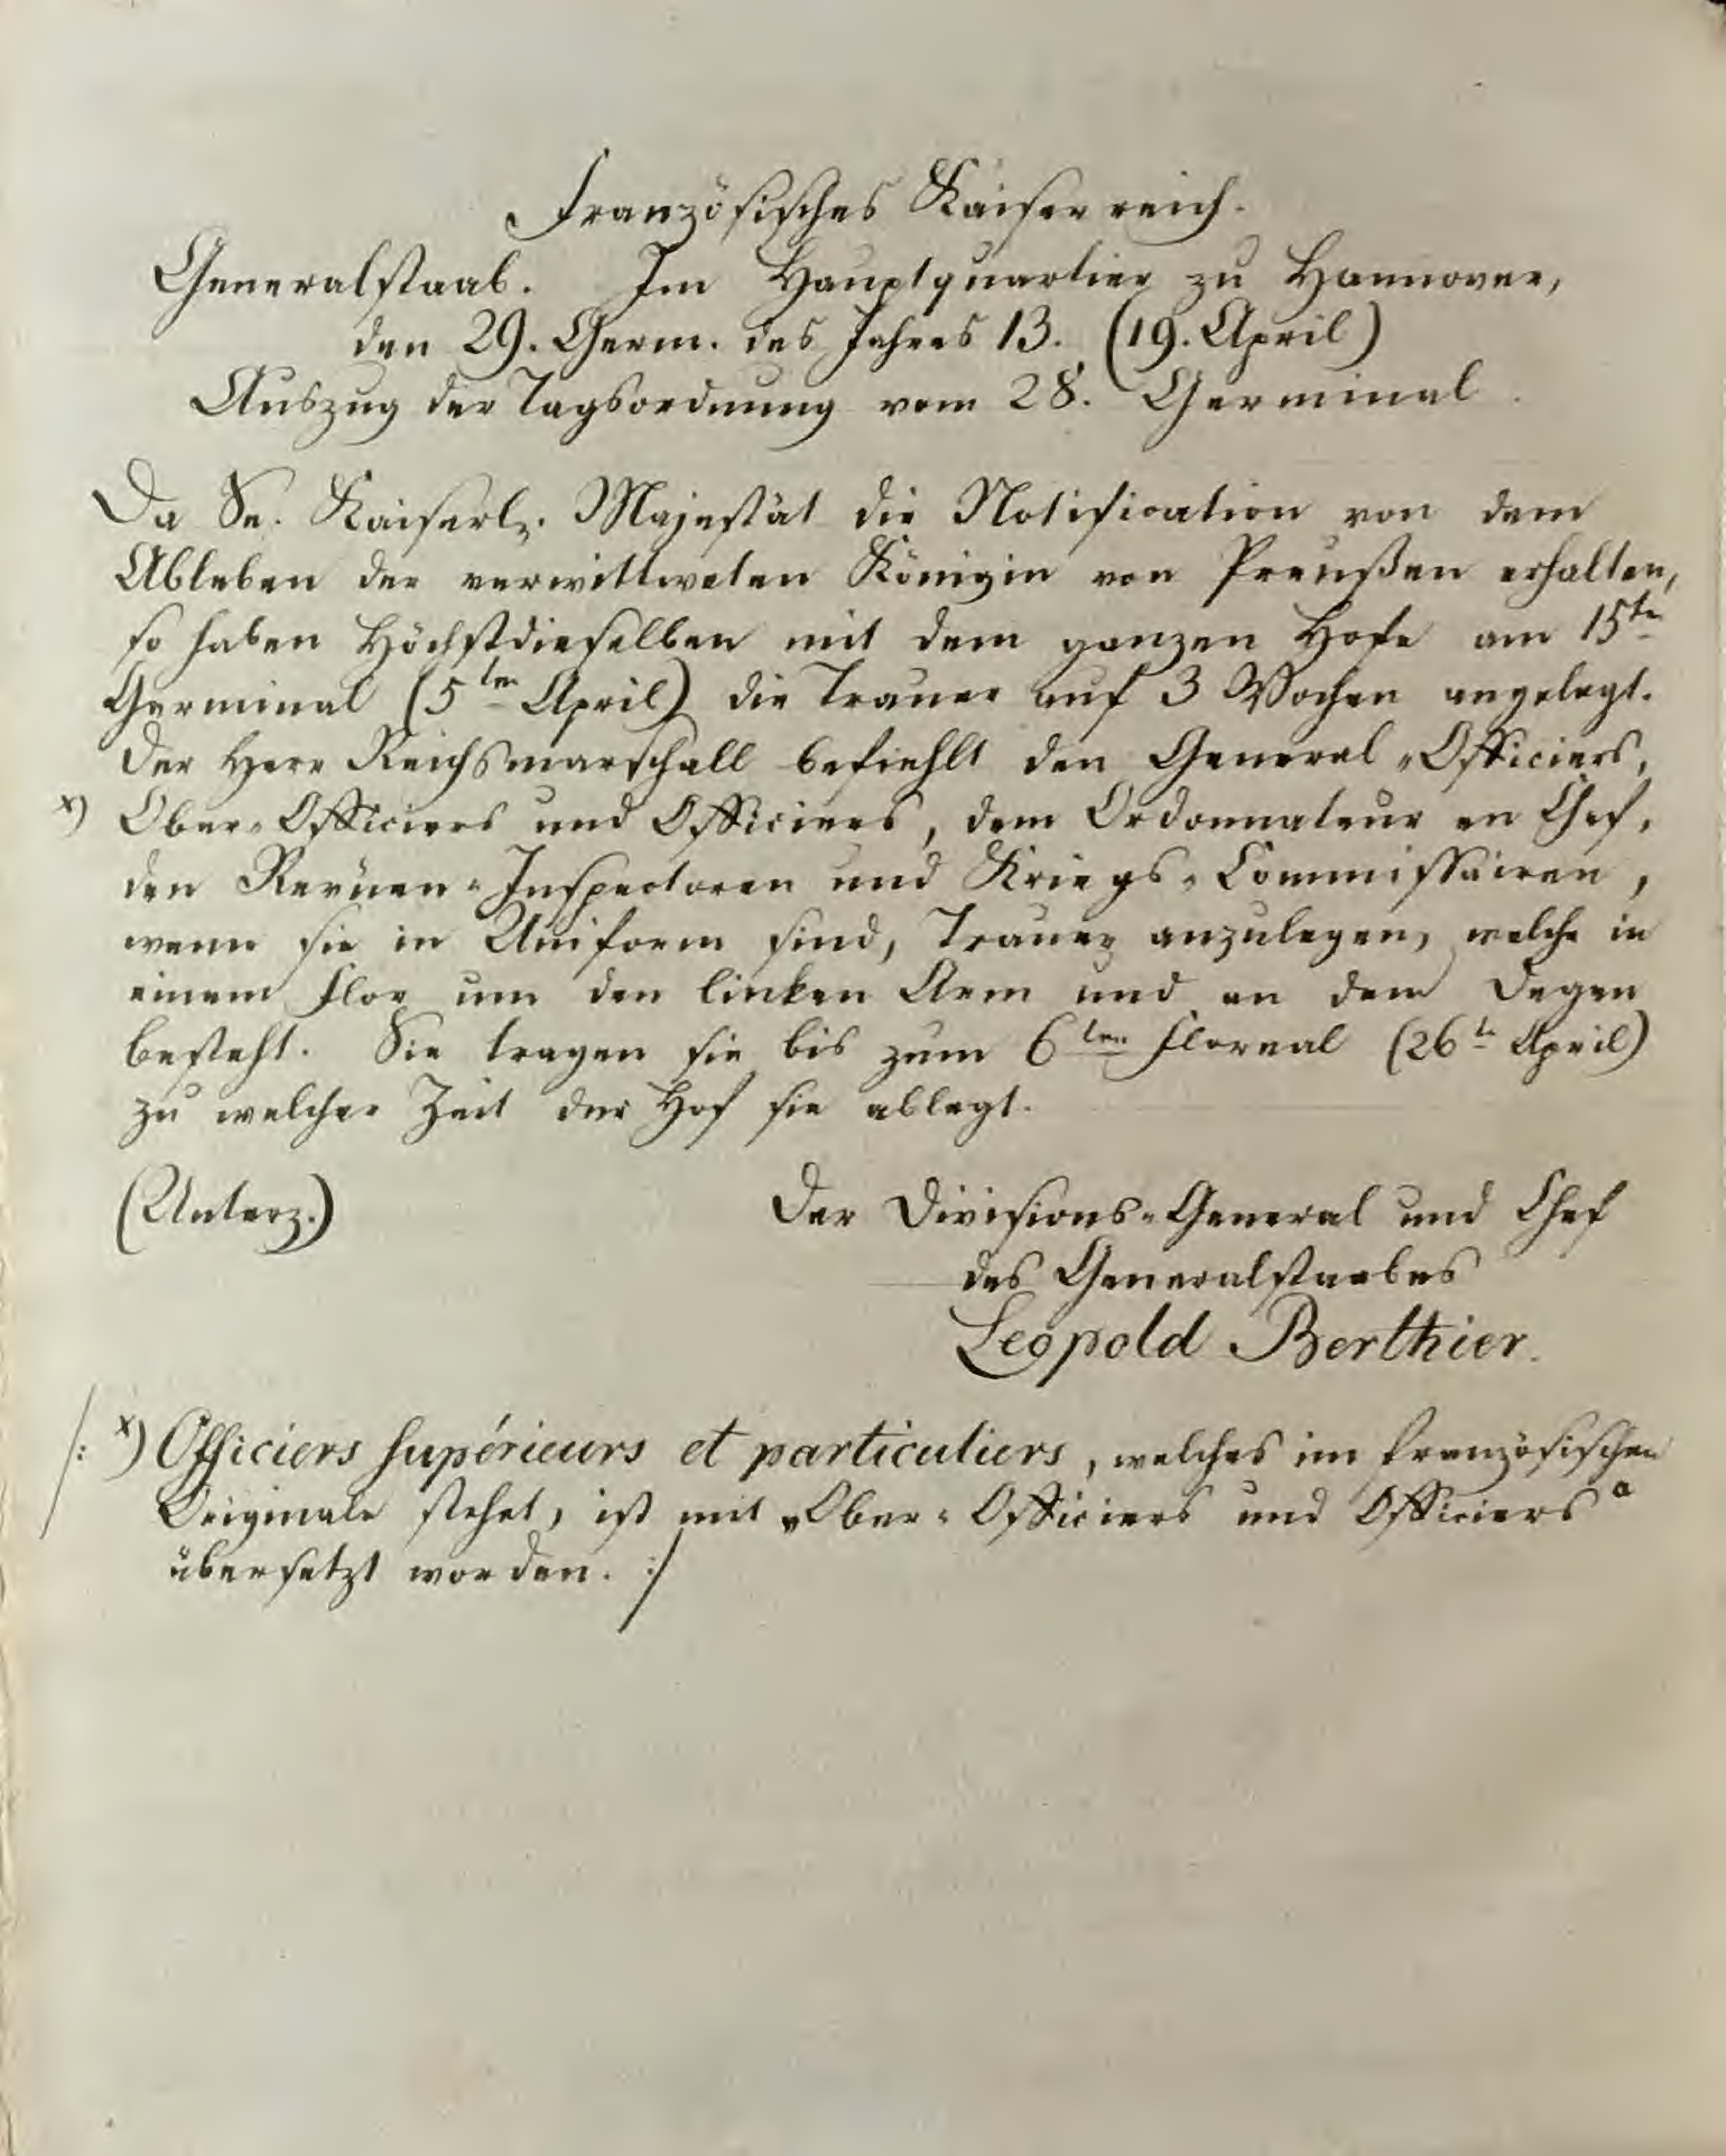 Französisches Kaiserreich.
Generalstaab. Im Hauptquartier zu Hannover,
den 29. Germ. des Jahres 13. (19. April)
Auszug der Tagsordnung vom 28. Germinal.
Da Se. Kaiserl. Majestät die Notification von dem
Ableben der verwittweten Königin von Preußen erhalten,
so haben Höchstdieselben mit dem ganzen Hofe am 15ten
Germinal (5ten April) die Trauer auf 3 Wochen angelegt.
Der Herr Reichsmarschall befiehlt den General-Officiers,
x) Ober-Officiers und Officiers, dem Ordonnateur en Chef,
den Revüen-Inspectoren und Kriegs-Commissairen,
wenn sie in Uniform sind, Trauer anzulegen, welche in
einem Flor um den linken Arm und an dem Degen
besteht. Sie tragen sie bis zum 6ten Floreal (26t April)
zu welcher Zeit der Hof sie ablegt.
(Unterz.) Der Divisions-General und Chef
des Generalstaabes
Leopold Berthier.
/: x) Officiers supérieurs et particuliers, welches im französischen
Originale stehet, ist mit „Ober-Officiers und Officiers“
übersetzt worden. :/